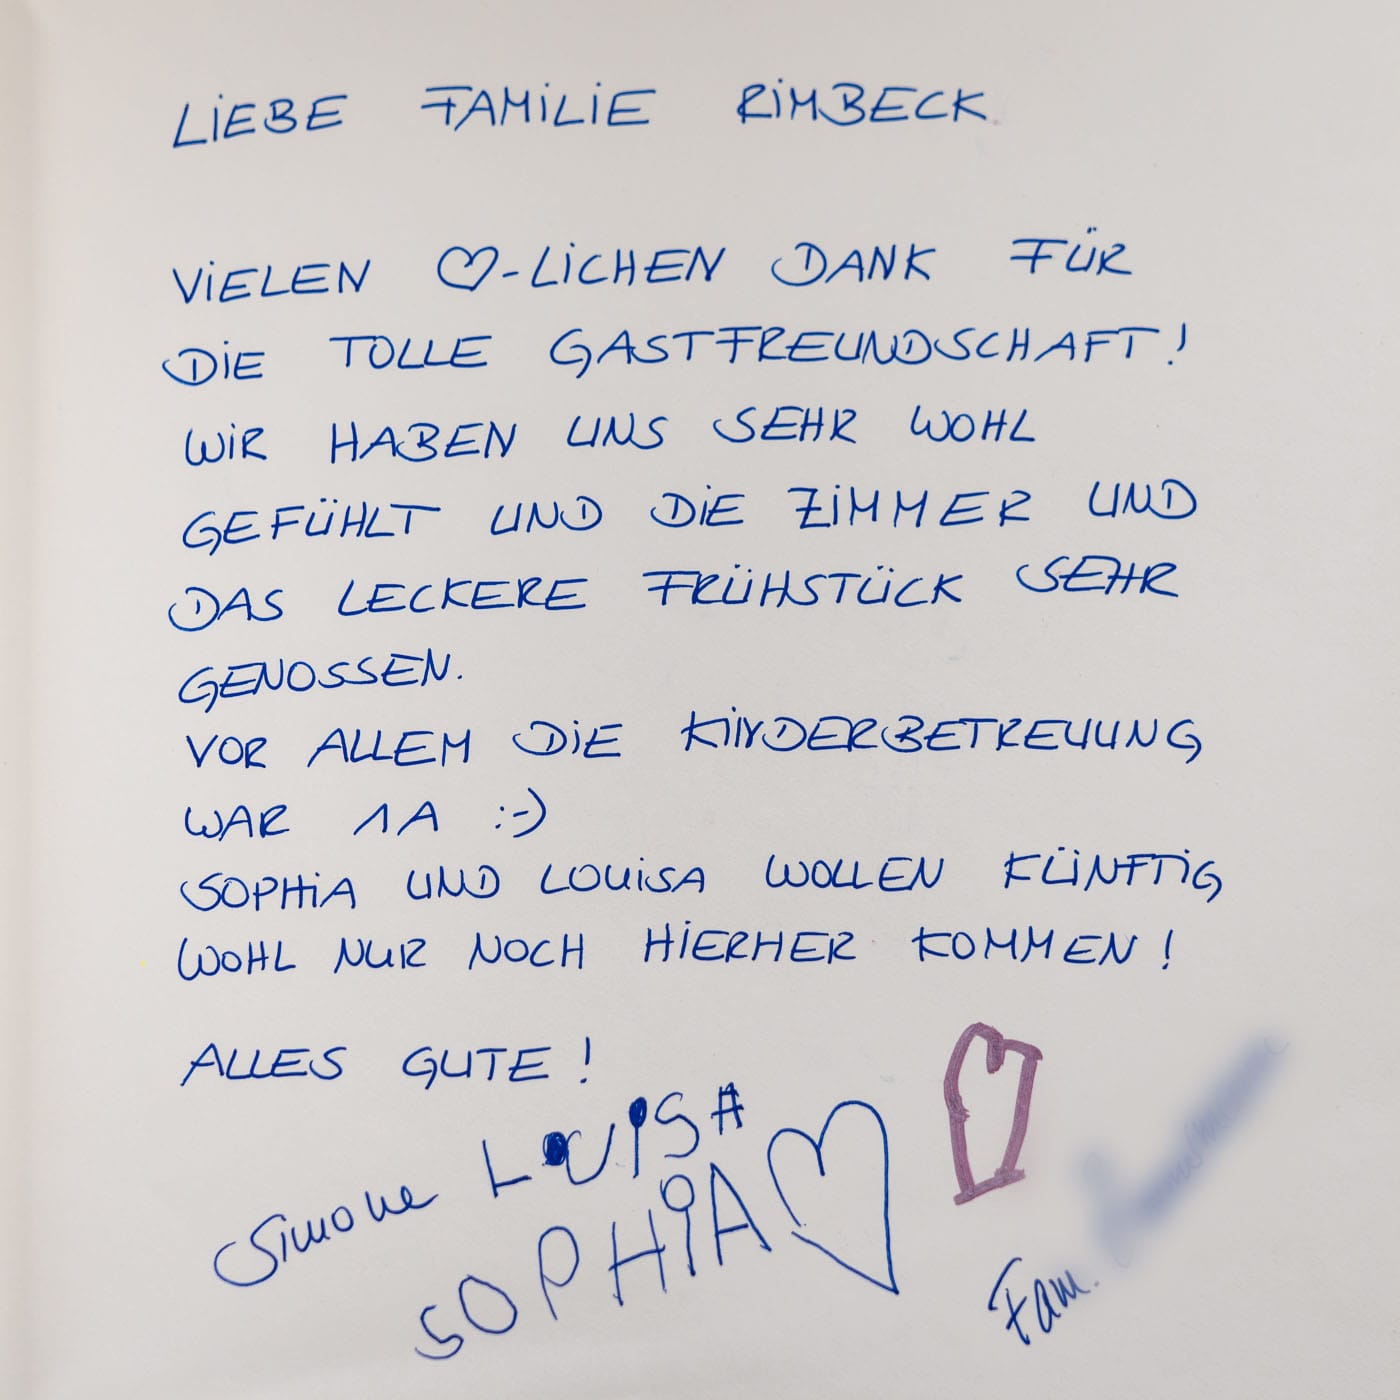 LIEBE FAMILIE RIMBECK
VIELEN ♡-LICHEN DANK FÜR
DIE TOLLE GASTFREUNDSCHAFT!
WIR HABEN UNS SEHR WOHL
GEFÜHLT UND DIE ZIMMER UND
DAS LECKERE FRÜHSTÜCK SEHR
GENOSSEN.
VOR ALLEM DIE KINDERBETREUUNG
WAR 1A :-)
SOPHIA UND LOUISA WOLLEN KÜNFTIG
WOHL NUR NOCH HIERHER KOMMEN!
ALLES GUTE!
Simone LOUISA
SOPHIA ♡
Fam.